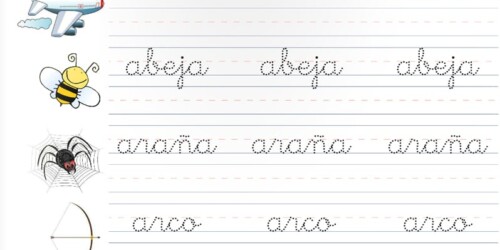 abeja abeja abeja
araña araña araña
arco arco arco